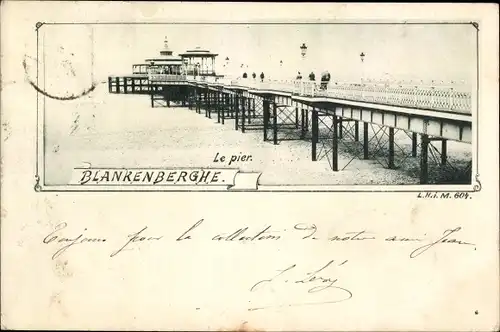 Le pier.
BLANKENBERGHE.
L.H.i.M. 604.
Toujours pour la collection de notre ami Jean
L. Leroy
6